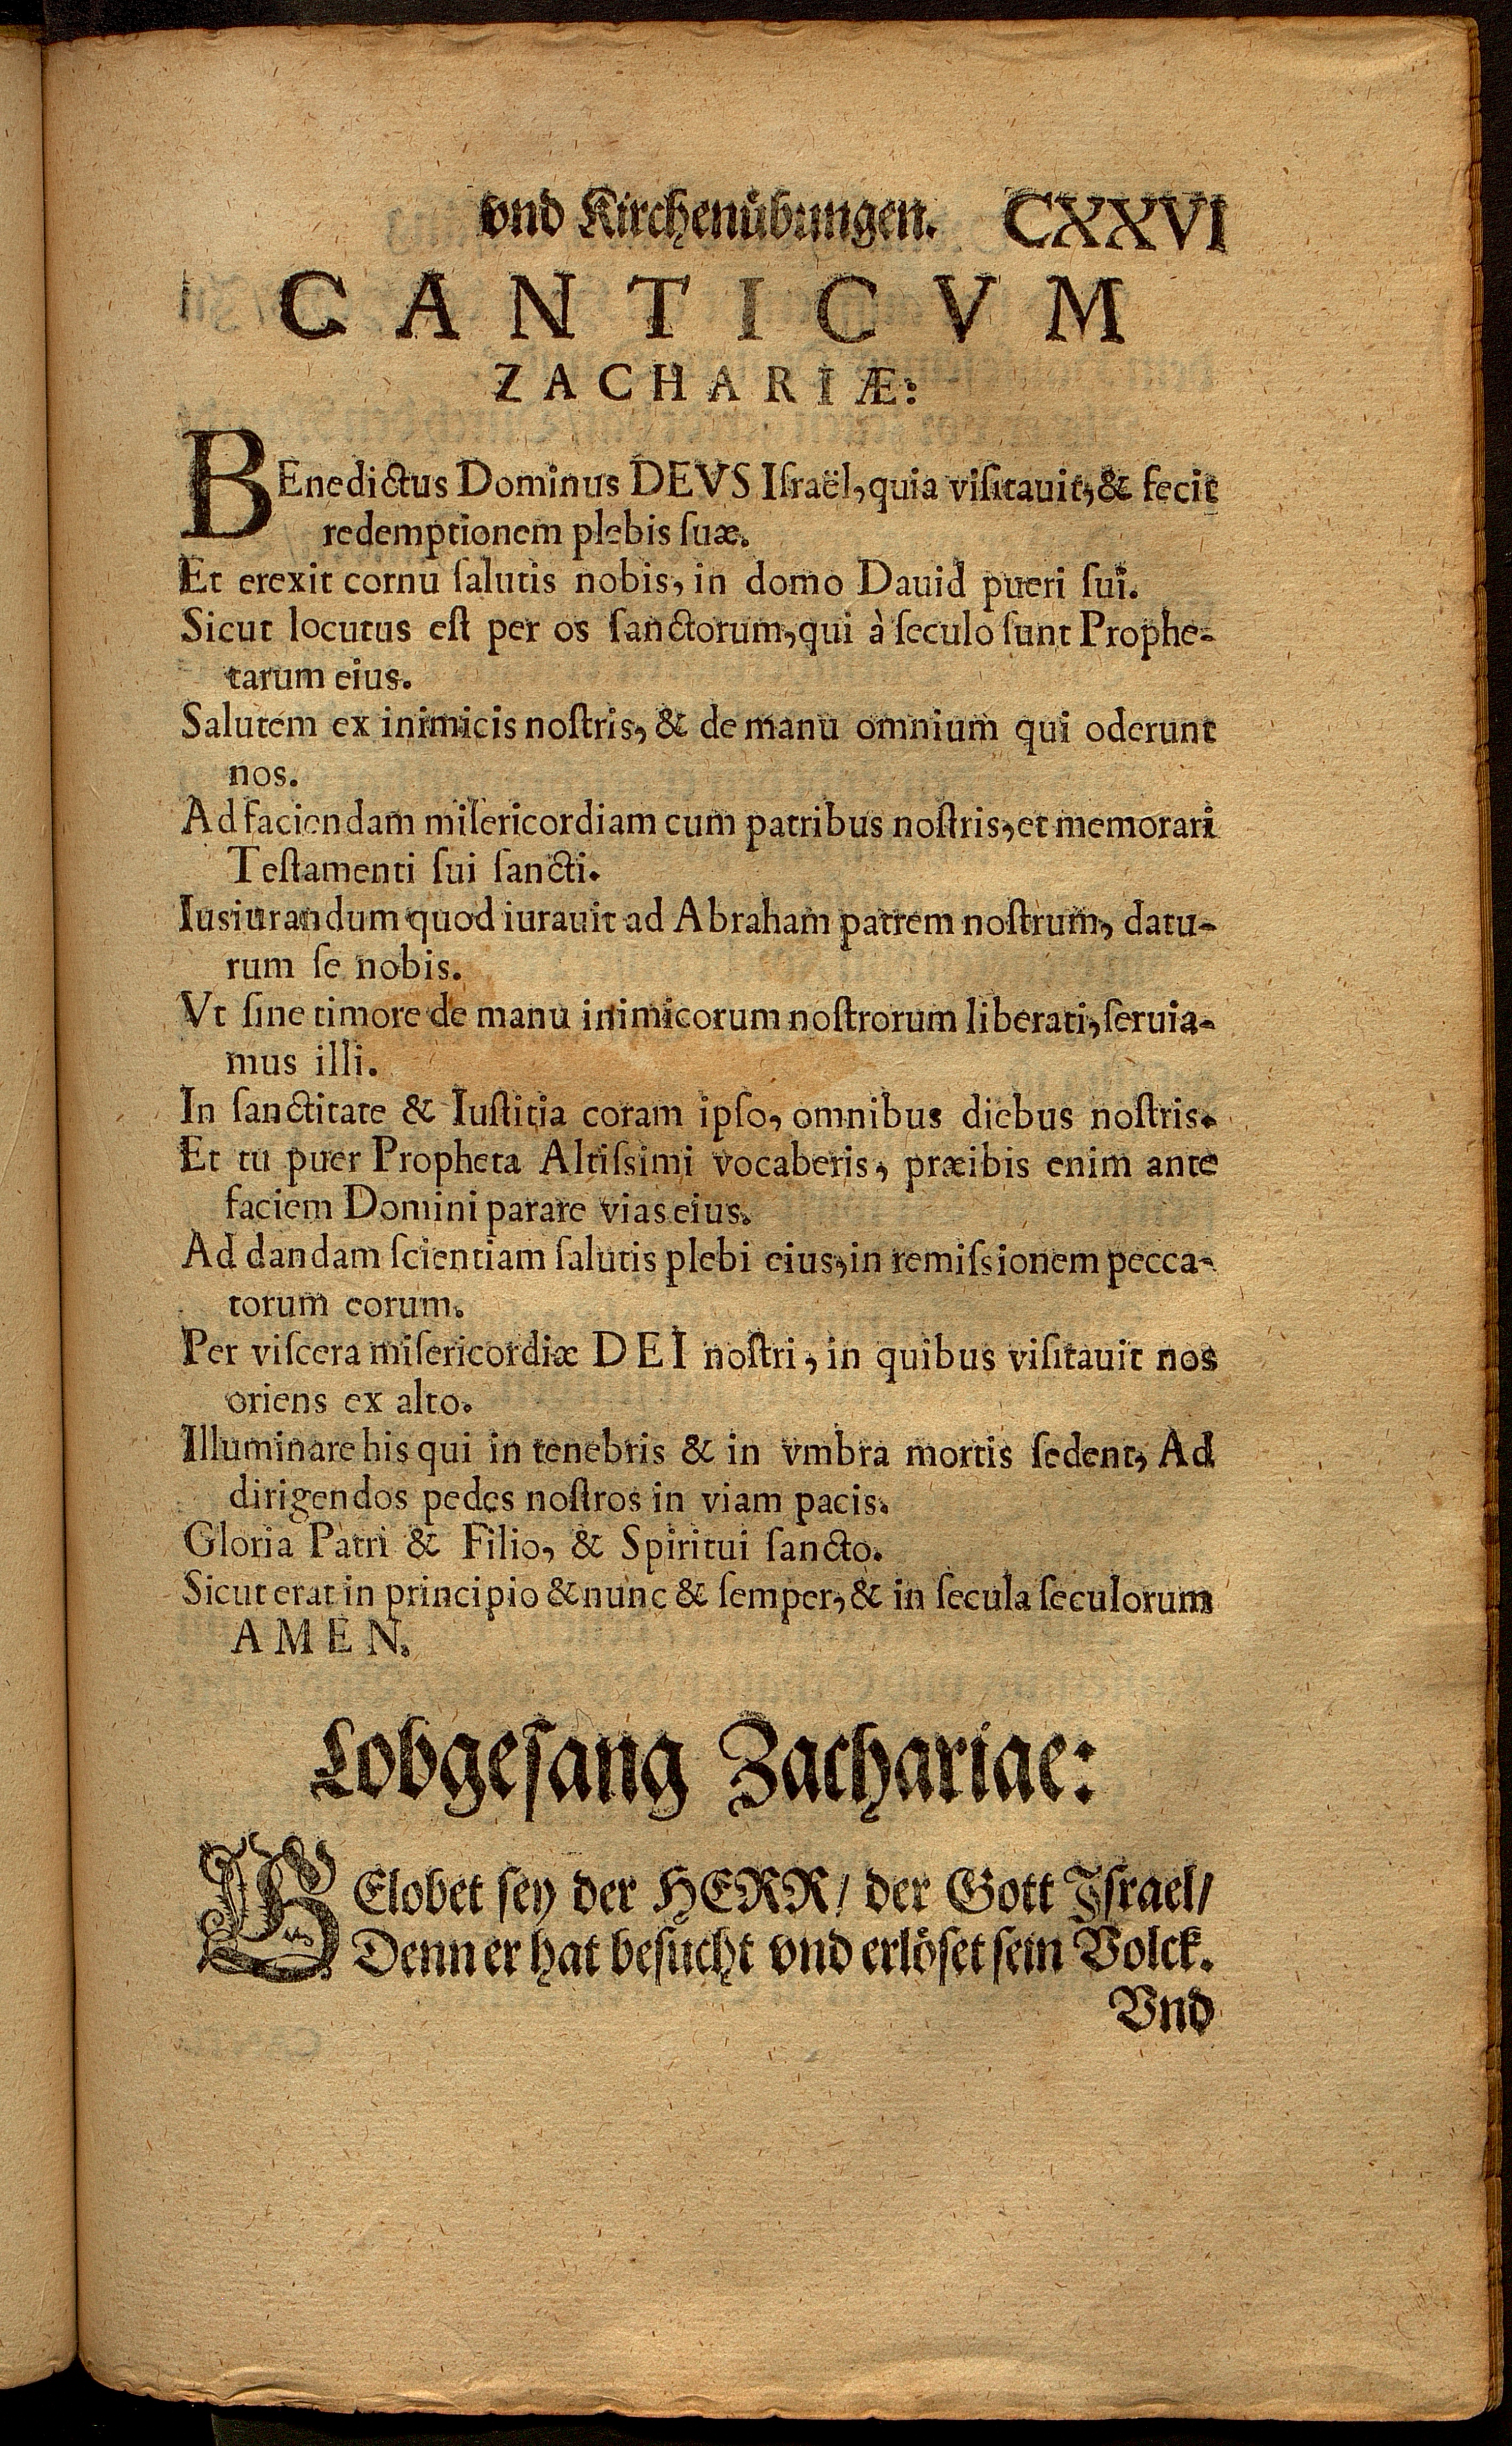 vnd Kirchenübungen. CXXVI
CANTICVM
ZACHARIÆ:
BEnedictus Dominus DEVS Iſraël, quia viſitauit, & fecit
redemptionem plebis ſuæ.
Et erexit cornu ſalutis nobis, in domo Dauid pueri ſui.
Sicut locutus eſt per os ſanctorum, qui à ſeculo ſunt Prophe-
tarum eius.
Salutem ex inimicis noſtris, & de manu omnium qui oderunt
nos.
Ad faciendam miſericordiam cum patribus noſtris, et memorari
Teſtamenti ſui ſancti.
Iusiurandum quod iurauit ad Abraham patrem noſtrum, datu-
rum ſe nobis.
Vt ſine timore de manu inimicorum noſtrorum liberati, ſeruia-
mus illi.
In ſanctitate & Iuſtitia coram ipſo, omnibus diebus noſtris.
Et tu puer Propheta Altiſsimi vocaberis, præibis enim ante
faciem Domini parare vias eius.
Ad dandam ſcientiam ſalutis plebi eius, in remiſsionem pecca-
torum eorum.
Per viſcera miſericordiæ DEI noſtri, in quibus viſitauit nos
oriens ex alto.
Illuminare his qui in tenebris & in vmbra mortis ſedent, Ad
dirigendos pedes noſtros in viam pacis.
Gloria Patri & Filio, & Spiritui ſancto.
Sicut erat in principio & nunc & ſemper, & in ſecula ſeculorum
AMEN.
Lobgeſang Zachariae:
GElobet ſey der HERR/ der Gott Iſrael/
Denn er hat beſucht vnd erlöſet ſein Volck.
Vnd